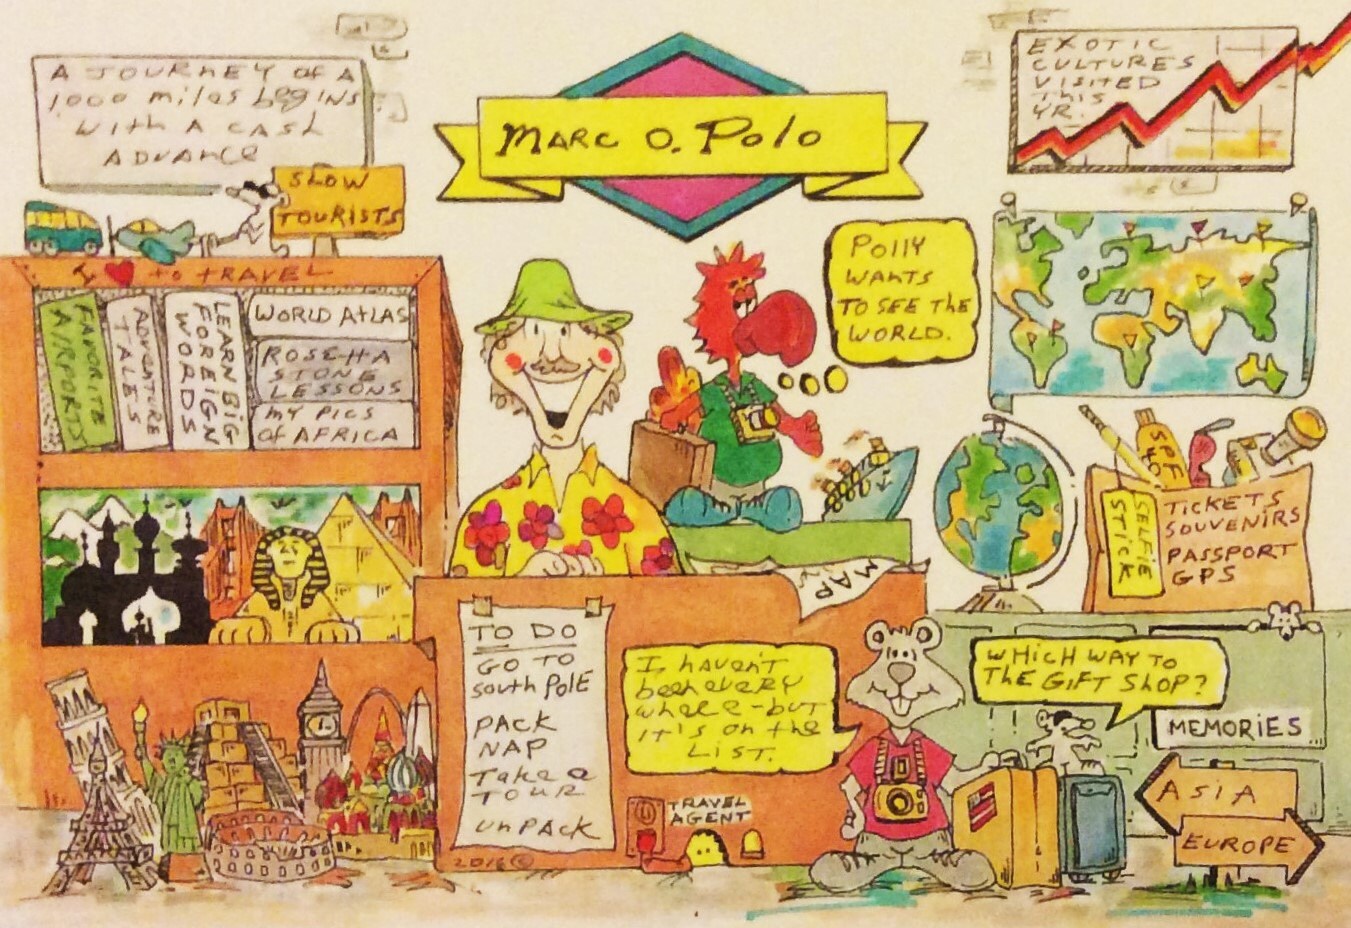 A JOURNEY OF A
1000 miles begins
WITH A CASH
ADVANCE
SLOW
TOURISTS
MARC O. POLO
EXOTIC
CULTURES
VISITED
THIS
YR.
POLLY
WANTS
TO SEE THE
WORLD.
I TO TRAVEL
FAVORITE
AIRPORTS
ADVENTURE
TALES
LEARN BIG
FOREIGN
WORDS
WORLD ATLAS
ROSETTA
STONE
LESSONS
MY PICS
OF AFRICA
MAP
SPF
SELFIE
STICK
TICKETS
SOUVENIRS
PASSPORT
GPS
TO DO
GO TO
SOUTH POLE
PACK
NAP
TAKE A
TOUR
UNPACK
2016 ©
I haven't
been every
where - but
it's on the
List.
TRAVEL
AGENT
WHICH WAY TO
THE GIFT SHOP?
MEMORIES
ASIA
EUROPE